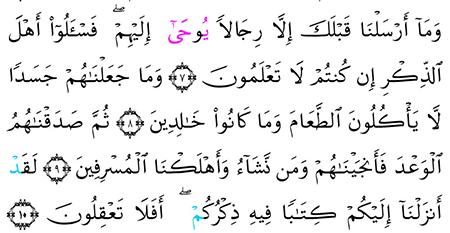 وَمَآ أَرْسَلْنَا قَبْلَكَ إِلَّا رِجَالاً يُوحَىٰٓ إِلَيْهِمْ ۖ فَسْـَٔلُوٓاْ أَهْلَ
ٱلذِّكْرِ إِن كُنتُمْ لَا تَعْلَمُونَ ﴿٧﴾ وَمَا جَعَلْنَٰهُمْ جَسَدًا
لَّا يَأْكُلُونَ ٱلطَّعَامَ وَمَا كَانُواْ خَٰلِدِينَ ﴿٨﴾ ثُمَّ صَدَقْنَٰهُمُ
ٱلْوَعْدَ فَأَنجَيْنَٰهُمْ وَمَن نَّشَآءُ وَأَهْلَكْنَا ٱلْمُسْرِفِينَ ﴿٩﴾ لَقَدْ
أَنزَلْنَآ إِلَيْكُمْ كِتَٰبًا فِيهِ ذِكْرُكُمْ ۖ أَفَلَا تَعْقِلُونَ ﴿١٠﴾